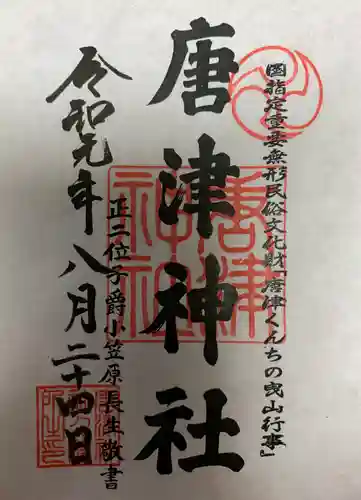 國指定重要無形民俗文化財「唐津くんちの曳山行事」
唐津神社
正二位子爵小笠原長生敬書
令和元年八月二十四日
唐津
神社